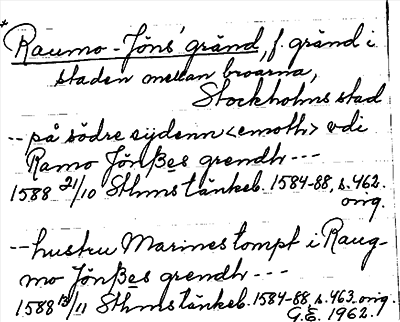 * Raumo-Jöns' gränd, f. gränd i
staden mellan broarna,
Stockholms stad
-- på södre sydenn <emoth> vdi
Ramo Jönßes grendh ---
1588 21/10 Sthmstänkeb. 1584-88, s. 462.
orig.
-- hustru Marines tompt i Raug-
mo Jönßes grendh ---
1588 13/11 Sthmstänkeb. 1584-88, s. 463. orig.
G.E. 1962.